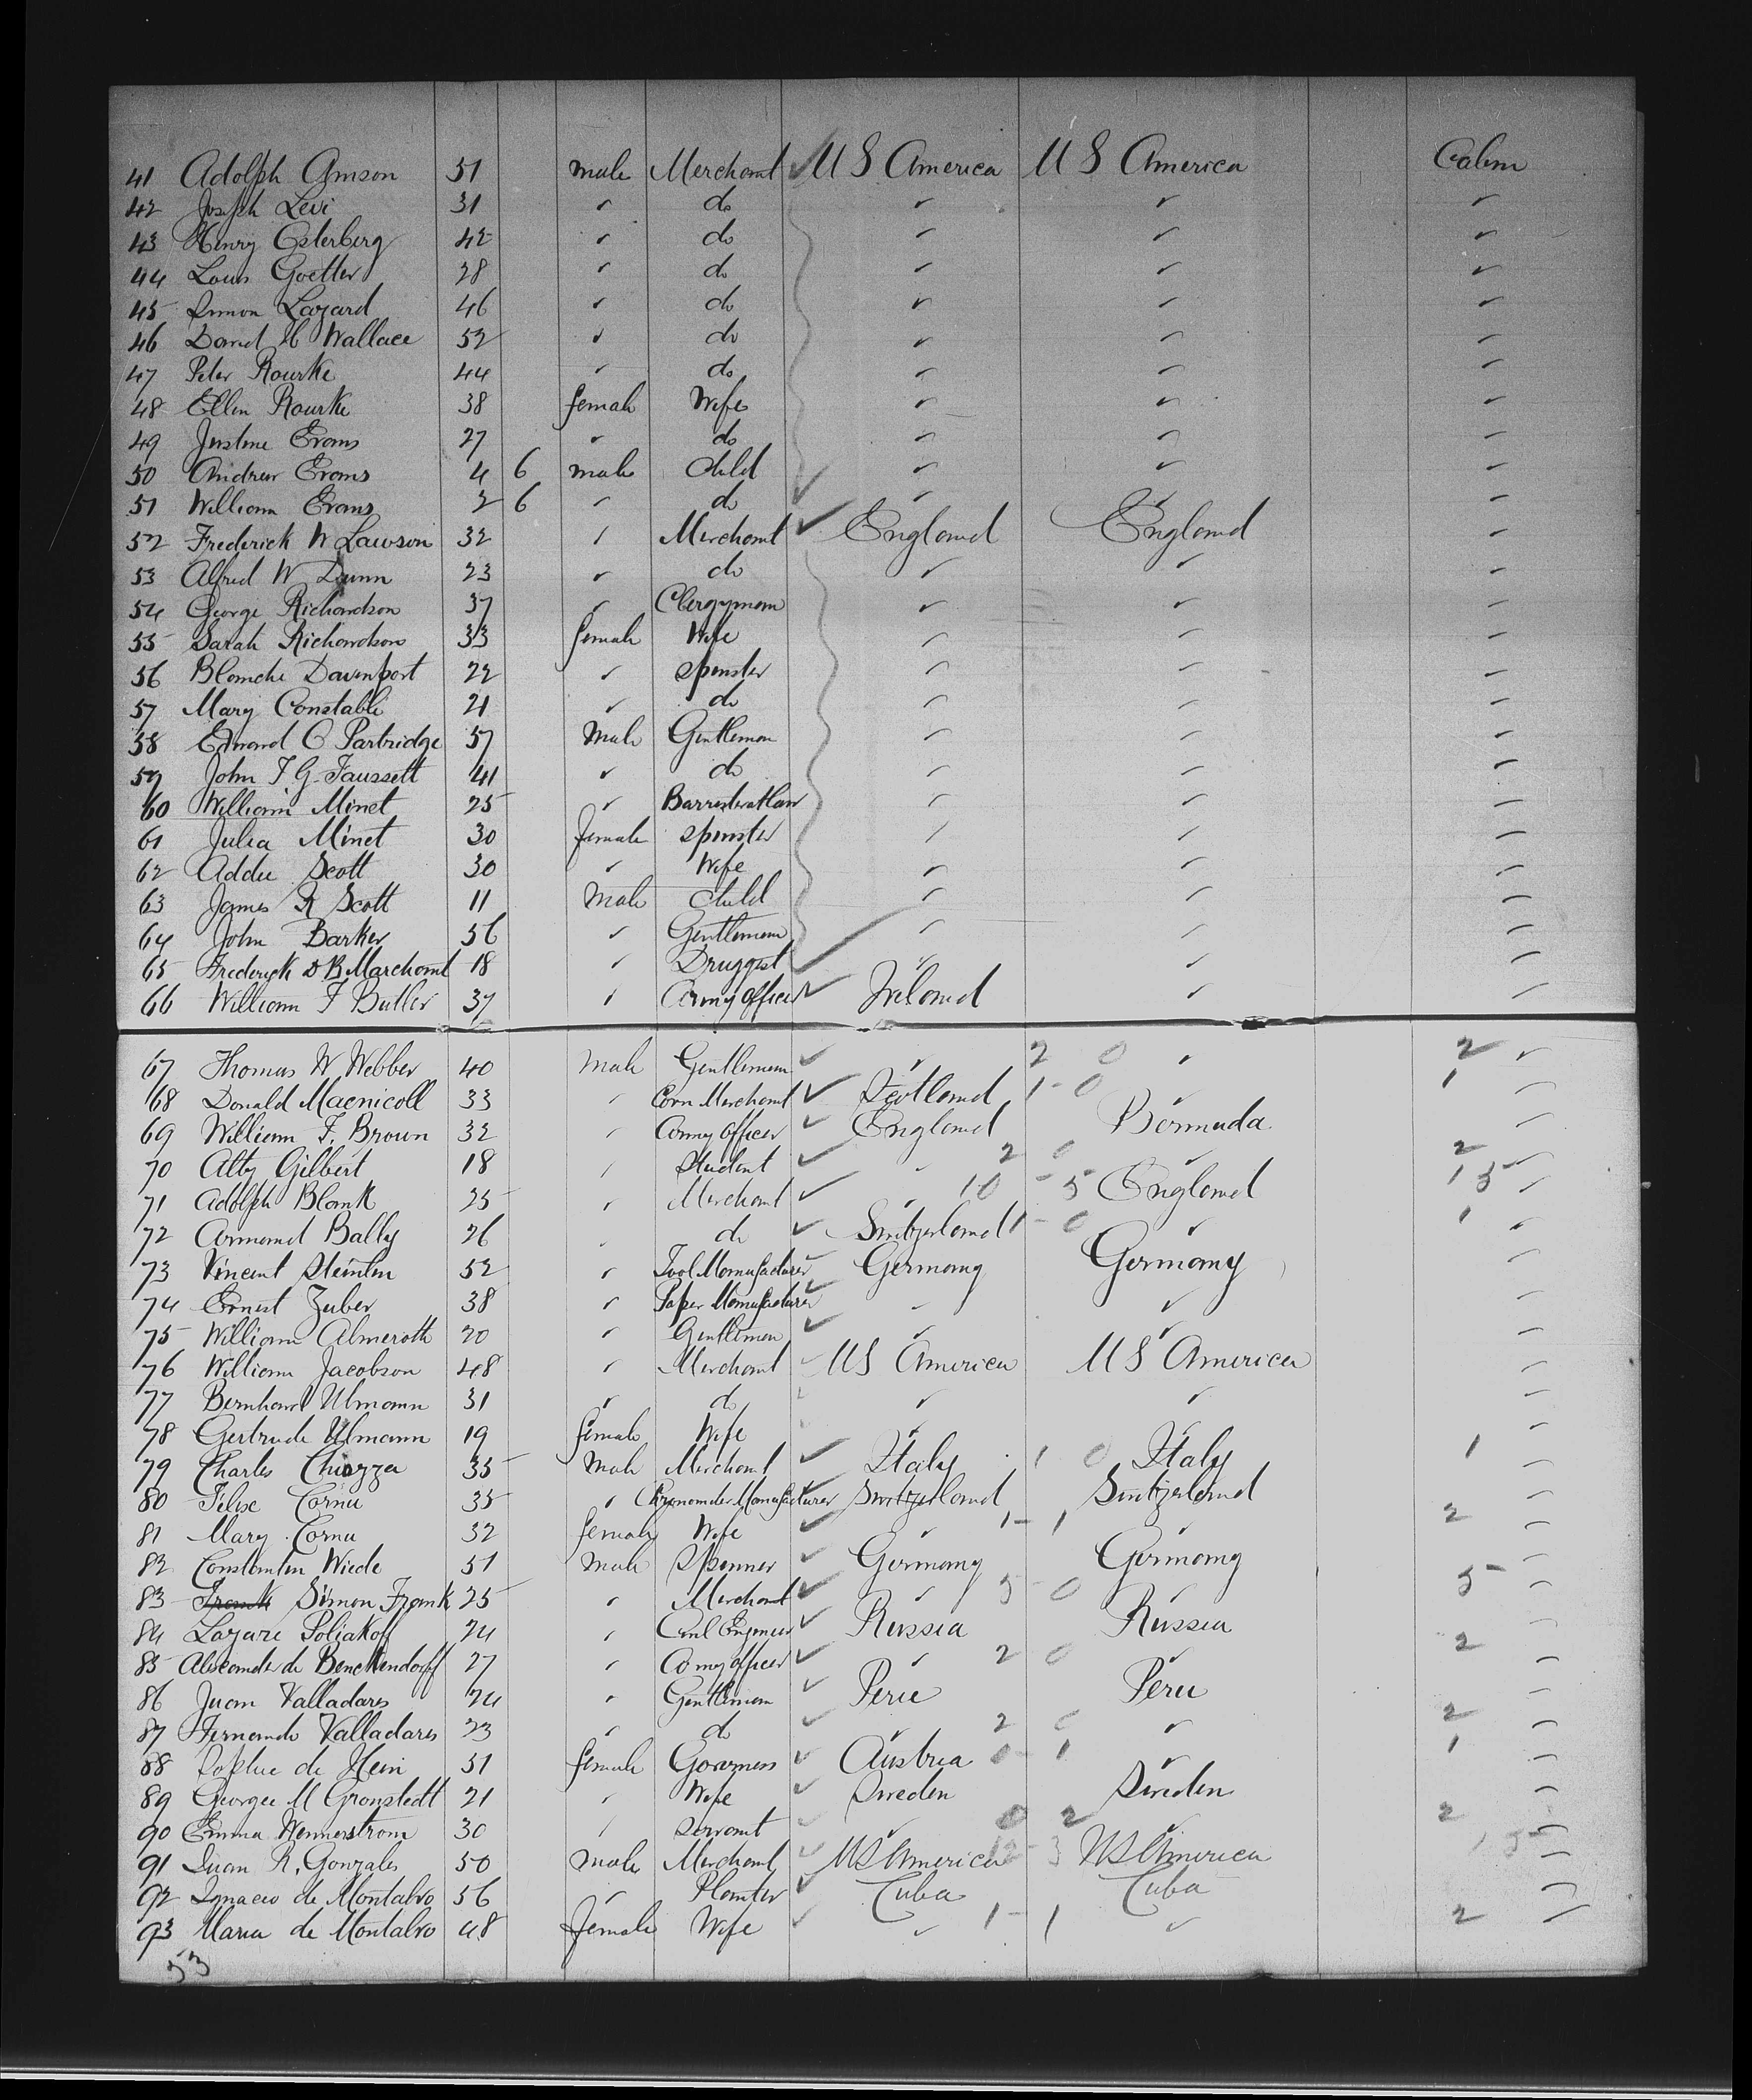 41 Adolph Amson 51 male Merchant ✓ U S America U S America Cabin
42 Joseph Levi 31 ✓ do ✓ ✓ ✓
43 Henry Esterberg 42 ✓ do ✓ ✓ ✓
44 Louis Goetter 28 ✓ do ✓ ✓ ✓
45 Simon Lazard 46 ✓ do ✓ ✓ ✓
46 David H Wallace 52 ✓ do ✓ ✓ ✓
47 Peter Rourke 44 ✓ do ✓ ✓ ✓
48 Ellen Rourke 38 female Wife ✓ ✓ ✓
49 Justine Evans 27 ✓ do ✓ ✓ ✓
50 Andrew Evans 4 6 male Child ✓ ✓ ✓ ✓
51 William Evans 2 6 ✓ do ✓ ✓ ✓ ✓
52 Frederick W Lawson 32 ✓ Merchant ✓ England England ✓
53 Alfred W Dunn 23 ✓ do ✓ ✓ ✓
54 George Richardson 37 ✓ Clergyman ✓ ✓ ✓
55 Sarah Richardson 33 female Wife ✓ ✓ ✓
56 Blanche Davenport 22 ✓ Spinster ✓ ✓ ✓
57 Mary Constable 21 ✓ do ✓ ✓ ✓
58 Edmond C Partridge 57 Male Gentleman ✓ ✓ ✓
59 John T G Faussett 41 ✓ do ✓ ✓ ✓
60 William Minet 25 ✓ Barrister at law ✓ ✓ ✓
61 Julia Minet 30 female Spinster ✓ ✓ ✓
62 Addie Scott 30 ✓ Wife ✓ ✓ ✓
63 James R Scott 11 Male Child ✓ ✓ ✓
64 John Barker 56 ✓ Gentleman ✓ ✓ ✓
65 Frederick D B Marchant 18 ✓ Druggist ✓ ✓ ✓ ✓
66 William F Butler 37 ✓ Army officer ✓ Ireland ✓ ✓
67 Thomas W Webber 40 Male Gentleman ✓ ✓ 2 0 ✓ 2 ✓
68 Donald Macnicoll 33 ✓ Corn Merchant ✓ Scotland 1 - 0 ✓ 1 ✓
69 William F. Brown 32 ✓ Army officer ✓ England Bermuda ✓
70 Atty Gilbert 18 ✓ Student ✓ ✓ 2 0 ✓ 2 ✓
71 Adolph Blank 25 ✓ Merchant ✓ ✓ 10 - 5 England 15 ✓
72 Armand Bally 26 ✓ do ✓ Switzerland 1 - 0 ✓ 1 ✓
73 Vincent Steinlen 52 ✓ Tool Manufacturer ✓ Germany Germany ✓
74 Ernest Zuber 38 ✓ Paper Manufacturer ✓ ✓ ✓ ✓
75 William Almeroth 20 ✓ Gentleman ✓ ✓ ✓ ✓
76 William Jacobson 48 ✓ Merchant ✓ US America U S America ✓
77 Bernhard Ulmann 31 ✓ do ✓ ✓ ✓ ✓
78 Gertrude Ulmann 19 female Wife ✓ ✓ ✓
79 Charles Chiozza 35 Male Merchant ✓ Italy 1 0 Italy 1 ✓
80 Felix Cornu 35 ✓ Manufacturer Switzerland Switzerland ✓
81 Mary Cornu 32 female Wife ✓ ✓ 1 - 1 ✓ 2 ✓
82 Constantin Wiede 51 Male Spinner ✓ Germany Germany ✓
83 Frank Simon Frank 25 ✓ Merchant ✓ ✓ 5 - 0 ✓ 5 ✓
84 Lazare Poliakoff 24 ✓ Civil Engineer ✓ Russia Russia ✓
85 Alexander de Benckendorff 27 ✓ Army officer ✓ ✓ 2 0 ✓ 2 ✓
86 Juan Valladares 24 ✓ Gentleman ✓ Peru Peru ✓
87 Fernando Valladares 23 ✓ do ✓ ✓ 2 0 ✓ 2 ✓
88 Sophie de Hein 31 female Governess ✓ Austria 0 - 1 ✓ 1 ✓
89 Georgee M Gronstedt 21 ✓ Wife ✓ Sweden Sweden ✓
90 Emma Wennerstrom 30 ✓ Servant ✓ ✓ 0 2 ✓ 2 ✓
91 Juan R. Gonzales 50 male Merchant ✓ US America 12 - 3 US America 15 ✓
92 Ignacio de Montalvo 56 ✓ Planter ✓ Cuba Cuba ✓
93 Maria de Montalvo 48 female Wife ✓ ✓ 1 - 1 ✓ 2 ✓
53